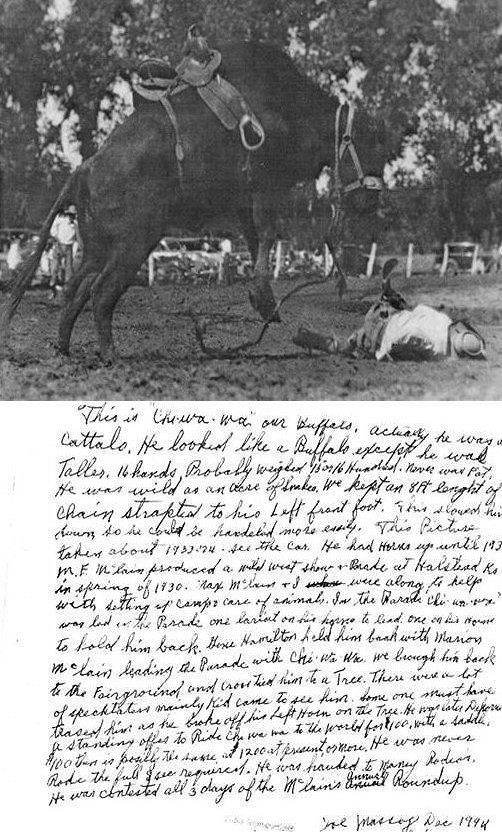 "This is "Chi-wa-wa" our Buffalo, actually he was a
Cattalo. He looked like a Buffalo except he was
Taller. 16 hands, Probably weighed 15 or 16 Hundred. Never was Fat.
He was wild as an acre of Snakes. We kept an 8 ft lenght of
Chain strapted to his Left front foot. This slowed him
down so he could be handeled more easily. This Picture
taken about 1933-34 - see the car. He had Horns up until 193
M. F. McLain produced a wild west show & Parade at Halstead Ks
in spring of 1930. Max McLain & I were along to help
with setting up camp & care of animals. In the Parade Chi-wa-wa
was led in the Parade one lariat on his horns to lead. one on his Horns
to hold him back. Gene Hamilton held him back with Marion
McLain leading the Parade with Chi-Wa Wa. We brough him back
to the Fairground and cross tied him to a Tree. There was a lot
of specktators mainly Kid came to see him. Some one must have
teased him as he broke off his Left Horn on the Tree. He was later Dehorned
a standing offer to Ride Chi wa wa to the world for $100, with a Saddle.
$100 then is the same at $1200 at present or more. He was never
Rode the full 8 sec required. He was hauled to many Rodeos.
He was contested all 3 days of the McLain's Annual Roundup.
Joe Massoy Dec 1994